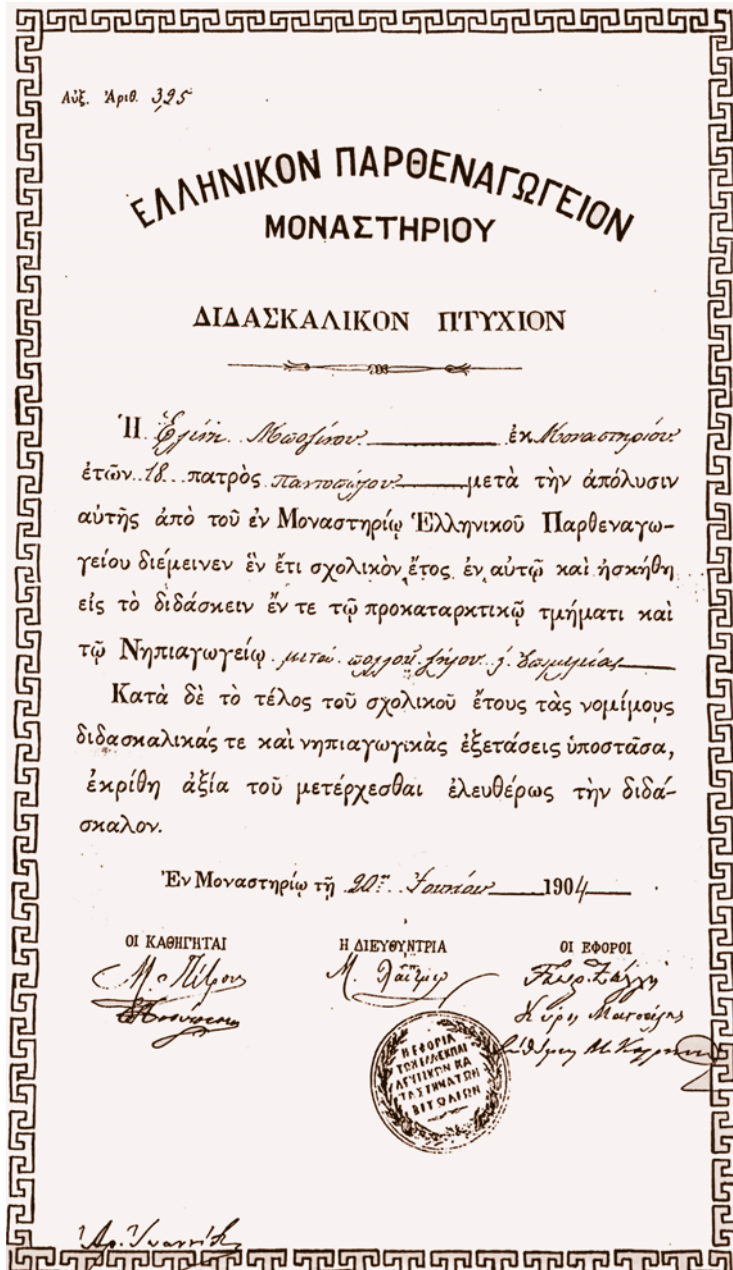 Αὐξ. Ἀριθ. 325
ἙΛΛΗΝΙΚΟΝ ΠΑΡΘΕΝΑΓΩΓΕΙΟΝ
ΜΟΝΑΣΤΗΡΙΟΥ
ΔΙΔΑΣΚΑΛΙΚΟΝ ΠΤΥΧΙΟΝ
Ἡ Ἑλένη ἐκ Μοναστηρίου
ἐτῶν 18 πατρὸς παντοπώλου μετὰ τὴν ἀπόλυσιν
αὐτῆς ἀπὸ τοῦ ἐν Μοναστηρίῳ Ἑλληνικοῦ Παρθεναγω-
γείου διέμεινεν ἓν ἔτι σχολικὸν ἔτος ἐν αὐτῷ καὶ ἠσκήθη
εἰς τὸ διδάσκειν ἔν τε τῷ προκαταρκτικῷ τμήματι καὶ
τῷ Νηπιαγωγείῳ μετὰ πολλοῦ ζήλου
Κατὰ δὲ τὸ τέλος τοῦ σχολικοῦ ἔτους τὰς νομίμους
διδασκαλικάς τε καὶ νηπιαγωγικὰς ἐξετάσεις ὑποστᾶσα,
ἐκρίθη ἀξία τοῦ μετέρχεσθαι ἐλευθέρως τὴν διδά-
σκαλον.
Ἐν Μοναστηρίῳ τῇ 20ῃ Ἰουνίου 1904
ΟΙ ΚΑΘΗΓΗΤΑΙ Η ΔΙΕΥΘΥΝΤΡΙΑ ΟΙ ΕΦΟΡΟΙ
Μ. Πέτρου Μ.
Η ΕΦΟΡΙΑ
ΤΩΝ ΕΛΛ ΕΚΠΑΙ
ΔΕΥΤΙΚΩΝ ΚΑ
ΤΑΣΤΗΜΑΤΩΝ
ΒΙΤΩΛΙΩΝ